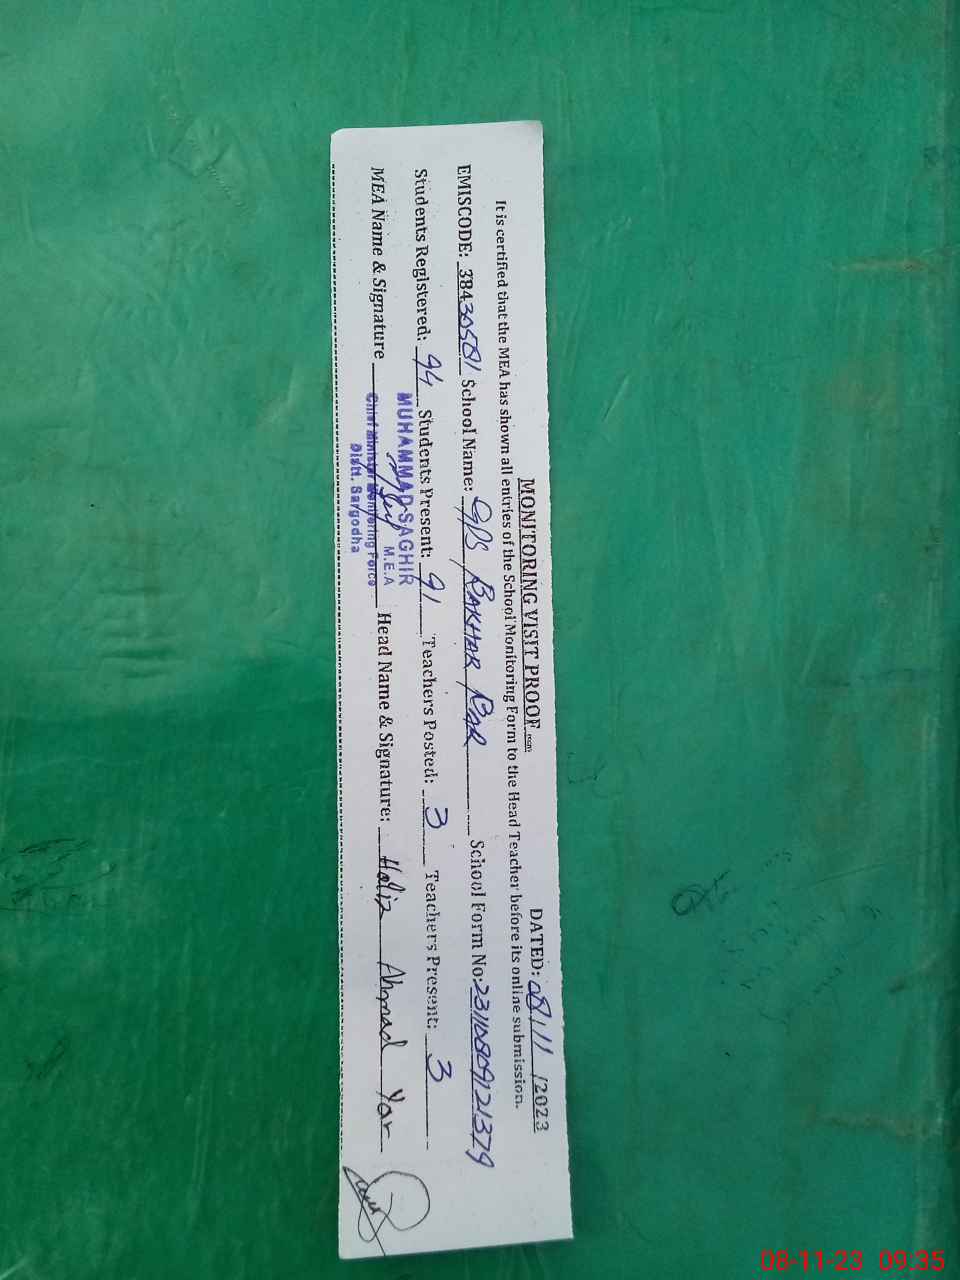 MONITORING VISIT PROOF
DATED: 08/11/2023
It is certified that the MEA has shown all entries of the School Monitoring Form to the Head Teacher before its online submission.
EMISCODE: 38430581 School Name: GPS BAKHAR BAR School Form No: 23110809121379
Students Registered: 94 Students Present: 91 Teachers Posted: 3 Teachers Present: 3
MEA Name & Signature Head Name & Signature: Hafiz Ahmad Yar
MUHAMMAD SAGHIR
M.E.A
Chief Minister Monitoring Force
Distt. Sargodha
08-11-23 09:35